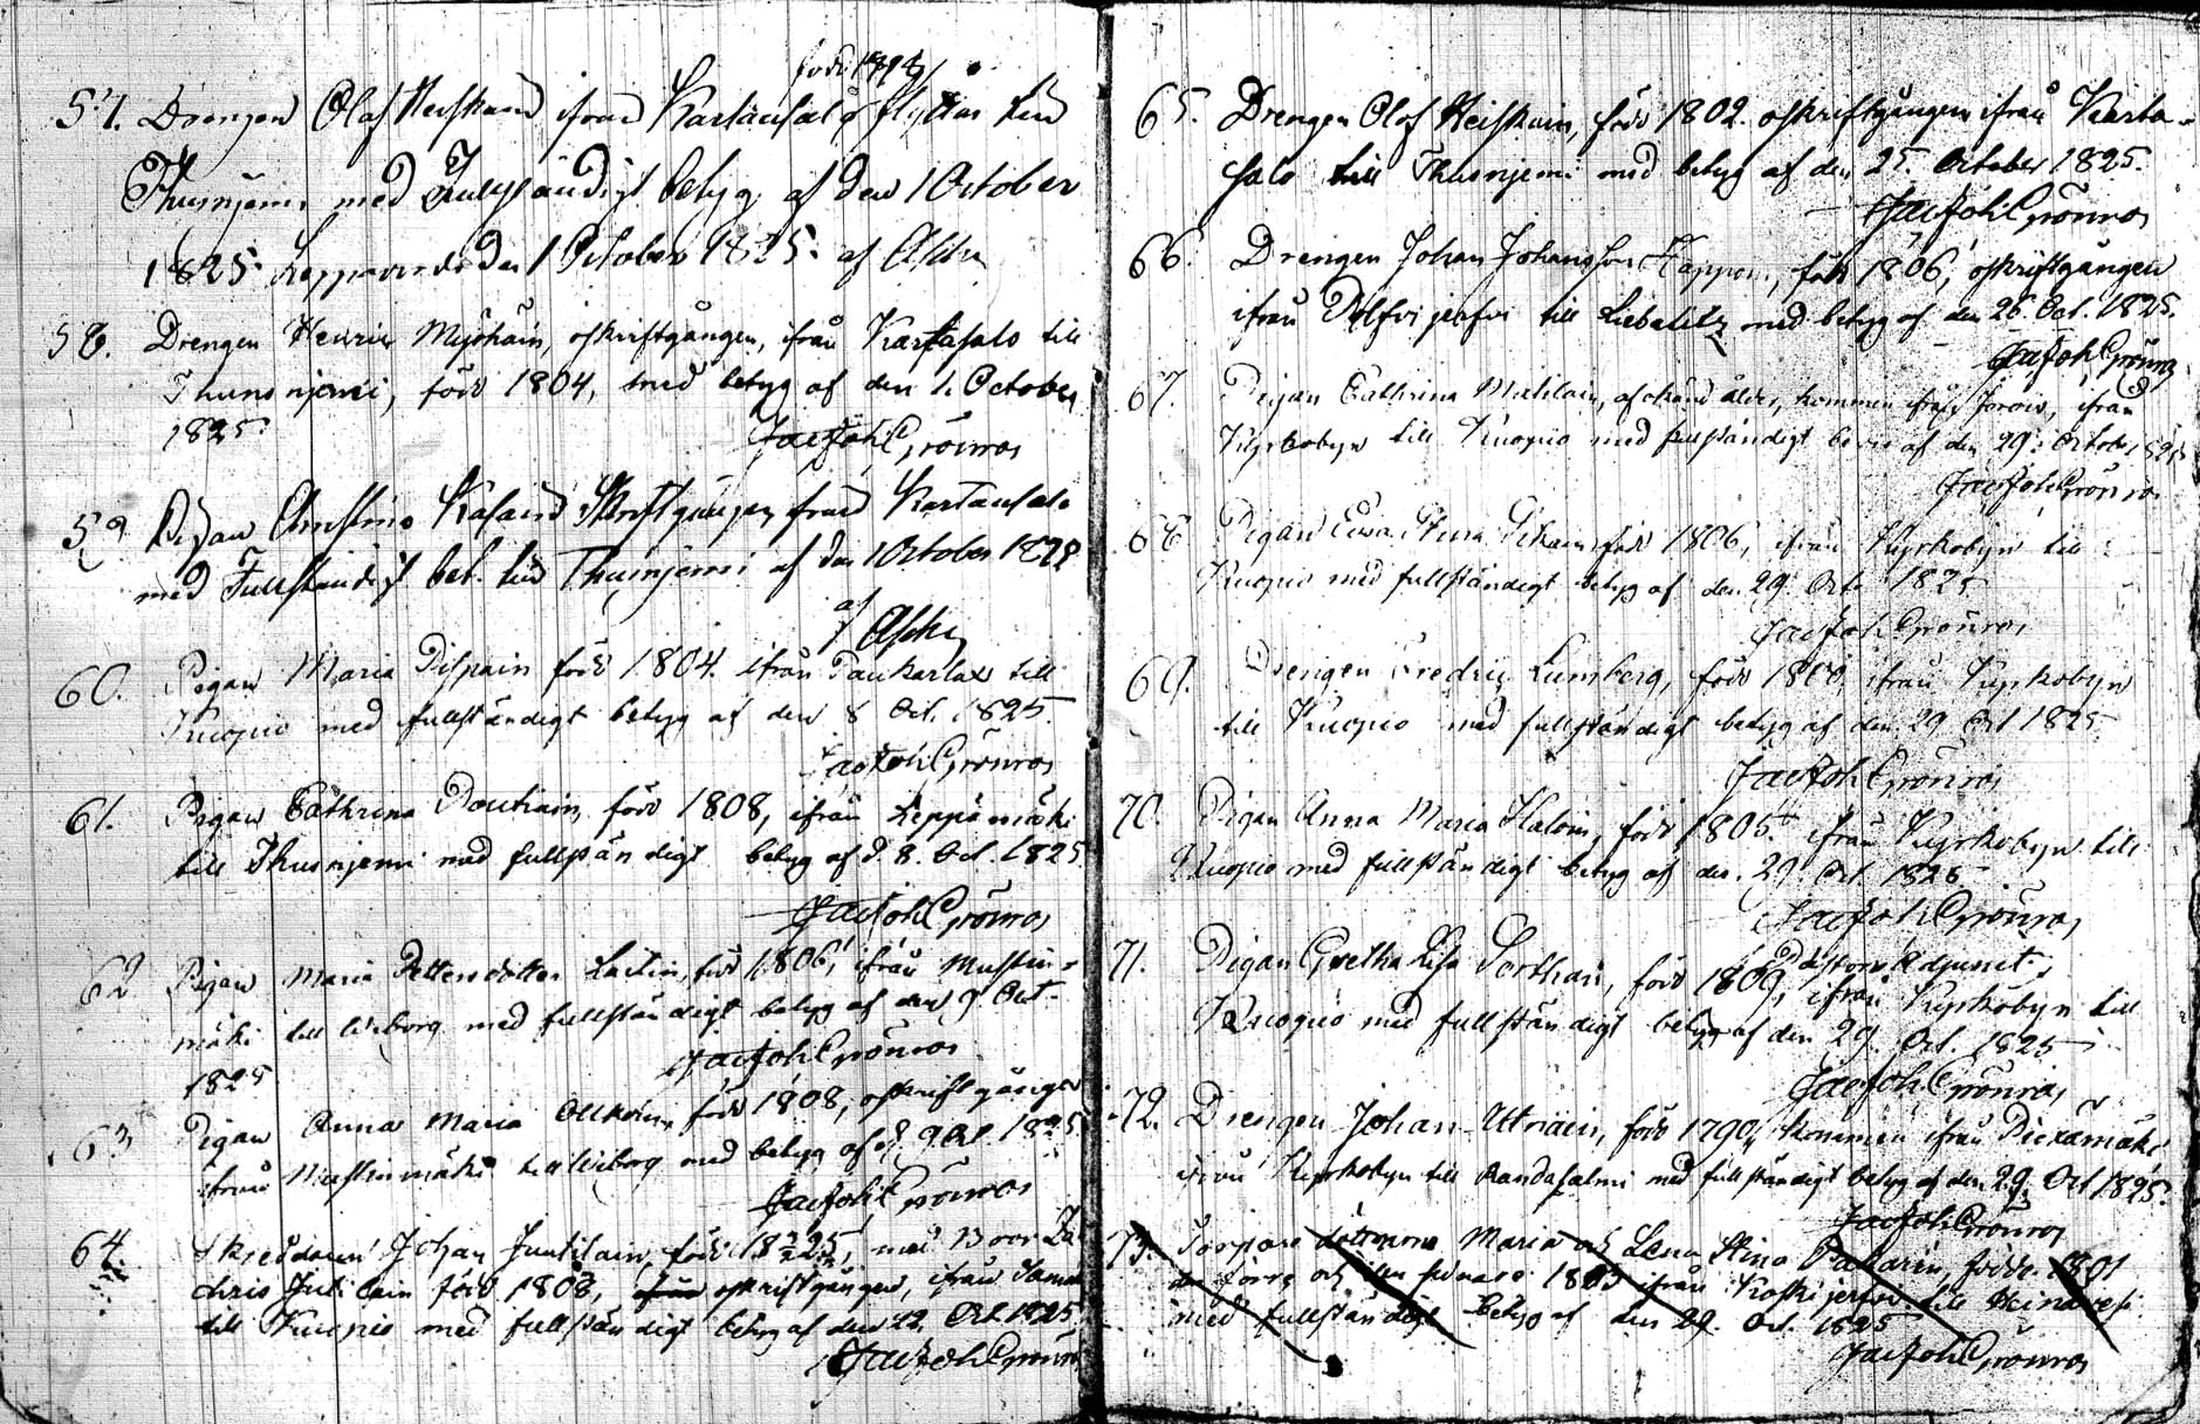 född 1794
57. Drengen Olof Heiskain ifrån Kartansalo flyttar till
Thusnjemi med Fullständigt betyg af den 1 October
1825. Leppävirda den 1 October 1825. af
58. Drengen Henric Myöhäin, oskriftgången, ifrån Kartasalo till
Thusnjemi, född 1804, med betyg af den 1. October
1825.
Jac Joh Grönros
59 Pigan Christina ifrån Kartansalo
med Fullständigt bet. till Thusnjemi af den 1 October
af
60. Pigan Maria Dispain född 1804. ifrån Paukarlax till
Kuopio med fullständigt betyg af den 8 Oct. 1825.
Jac Joh Grönros
61. Pigan Cathrina född 1808, ifrån Leppämäki
till Thusnjemi med fullständigt betyg af d. 8. Oct. 1825
Jac Joh Grönros
62 Pigan Maria Pettersdotter Laitin, född 1806, ifrån Mustin-
mäki till Wiborg med fullständigt betyg af den 9. Oct.
1825
Jac Joh Grönros
63 Pigan Anna Maria född 1808, oskriftgången
ifrån Mustinmäki till Wiborg med betyg af d. 9. Oct 1825
Jac Joh Grönros
64. Johan Juutilain, född med
född 1808, oskriftgången, ifrån
till Kuopio med fullständigt betyg af den 22. Oct 1825
Jac Joh Grönros
65. Drengen Olof Heiskain, född 1802. oskriftgången ifrån Karta-
salo till Thusnjemi med betyg af den 25. October 1825.
Jac Joh Grönros
66. Drengen Johan Johansson född 1806, oskriftgången
ifrån till Libelitz med betyg af den 26. Oct. 1825.
Jac Joh Grönros
67. Pigan Cathrina af okänd ålder, kommen ifrån Jorois, ifrån
Kyrkobyn till Kuopio med fullständigt bevis af den 29. October 1825
Jac Joh Grönros
68 Pigan Ewa Stina född 1806, ifrån Kyrkobyn till
Kuopio med fullständigt betyg af den 29. Oct. 1825
Jac Joh Grönros
69. Drengen Fredric Lumberg, född ifrån Kyrkobyn
till Kuopio med fullständigt betyg af den 29 Oct 1825.
Jac Joh Grönros
70. Pigan Anna Maria född 1805. ifrån Kyrkobyn till
Kuopio med fullständigt betyg af den 29. Oct. 1825
Jac Joh Grönros
Pastors Adjunct
71. Pigan Gretha Lisa född 1809, ifrån Kyrkobyn till
Kuopio med fullständigt betyg af den 29. Oct. 1825
Jac Joh Grönros
72. Drengen Johan född 1790, kommen ifrån Piexämäki
ifrån Kyrkobyn till Randasalmi med fullständigt betyg af den 29. Oct 1825.
Jac Joh Grönros
73. Torpare döttrarne Maria och Lena Stina Pakarin, födde 1801
den förra och den senare 1803 ifrån Koskijerfvi till Heinävesi
med fullständigt betyg af den 29. Oct. 1825
Jac Joh Grönros